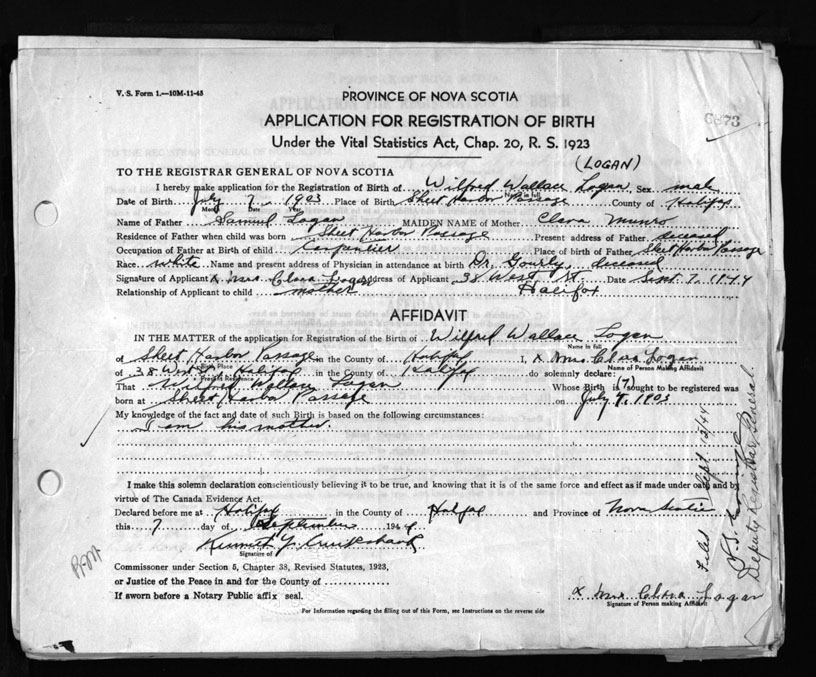 V. S. Form 1.—10M-11-43
PROVINCE OF NOVA SCOTIA
APPLICATION FOR REGISTRATION OF BIRTH
Under the Vital Statistics Act, Chap. 20, R. S. 1923
(LOGAN)
TO THE REGISTRAR GENERAL OF NOVA SCOTIA
I hereby make application for the Registration of Birth of Wilfred Wallace Logan Sex male
Name in full
Date of Birth July 7, 1903 Place of Birth Sheet Harbor Passage County of Halifax
Month Date Year
Name of Father Samuel Logan MAIDEN NAME of Mother Clara Munro
Residence of Father when child was born Sheet Harbor Passage Present address of Father deceased
Occupation of Father at Birth of child Carpentier Place of birth of Father Sheet Harbor Passage
Race white Name and present address of Physician in attendance at birth Dr. Gourly, deceased
Signature of Applicant x Mrs Clara Logan Address of Applicant 38 West St. Date Sept 7, 1944
Relationship of Applicant to child mother Halifax
AFFIDAVIT
IN THE MATTER of the application for Registration of the Birth of Wilfred Wallace Logan
Name in full
of Sheet Harbor Passage in the County of Halifax I, x Mrs Clara Logan
Birth Place Name of Person Making Affidavit
of 38 West St Halifax in the County of Halifax do solemnly declare:
Present Residence
That Wilfred Wallace Logan Whose Birth is sought to be registered was
(7)
born at Sheet Harbor Passage on July 7, 1903
My knowledge of the fact and date of such Birth is based on the following circumstances:
I am his mother.
I make this solemn declaration conscientiously believing it to be true, and knowing that it is of the same force and effect as if made under oath and by
virtue of The Canada Evidence Act.
Declared before me at Halifax in the County of Halifax and Province of Nova Scotia
this 7 day of September 1944
Kenneth
Signature of
Commissioner under Section 5, Chapter 38, Revised Statutes, 1923,
or Justice of the Peace in and for the County of
If sworn before a Notary Public affix seal.
x Mrs Clara Logan
Signature of Person making Affidavit
For Information regarding the filling out of this Form, see Instructions on the reverse side
Filed Sept 13/44
Deputy Registrar General